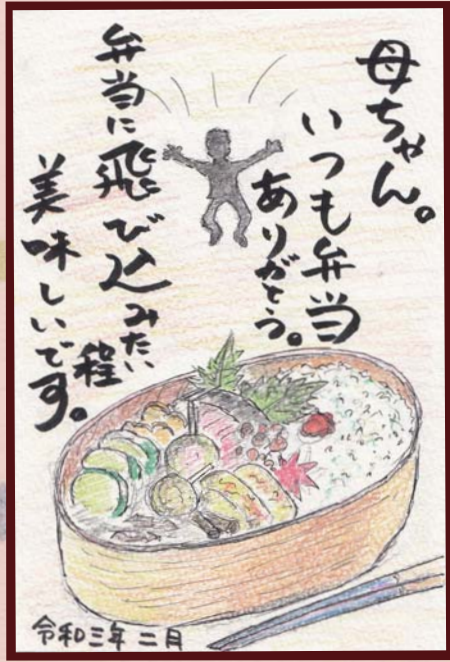 母ちゃん。
いつも弁当
ありがとう。
弁当に飛び込みたい
程
美味しいです。
令和三年二月